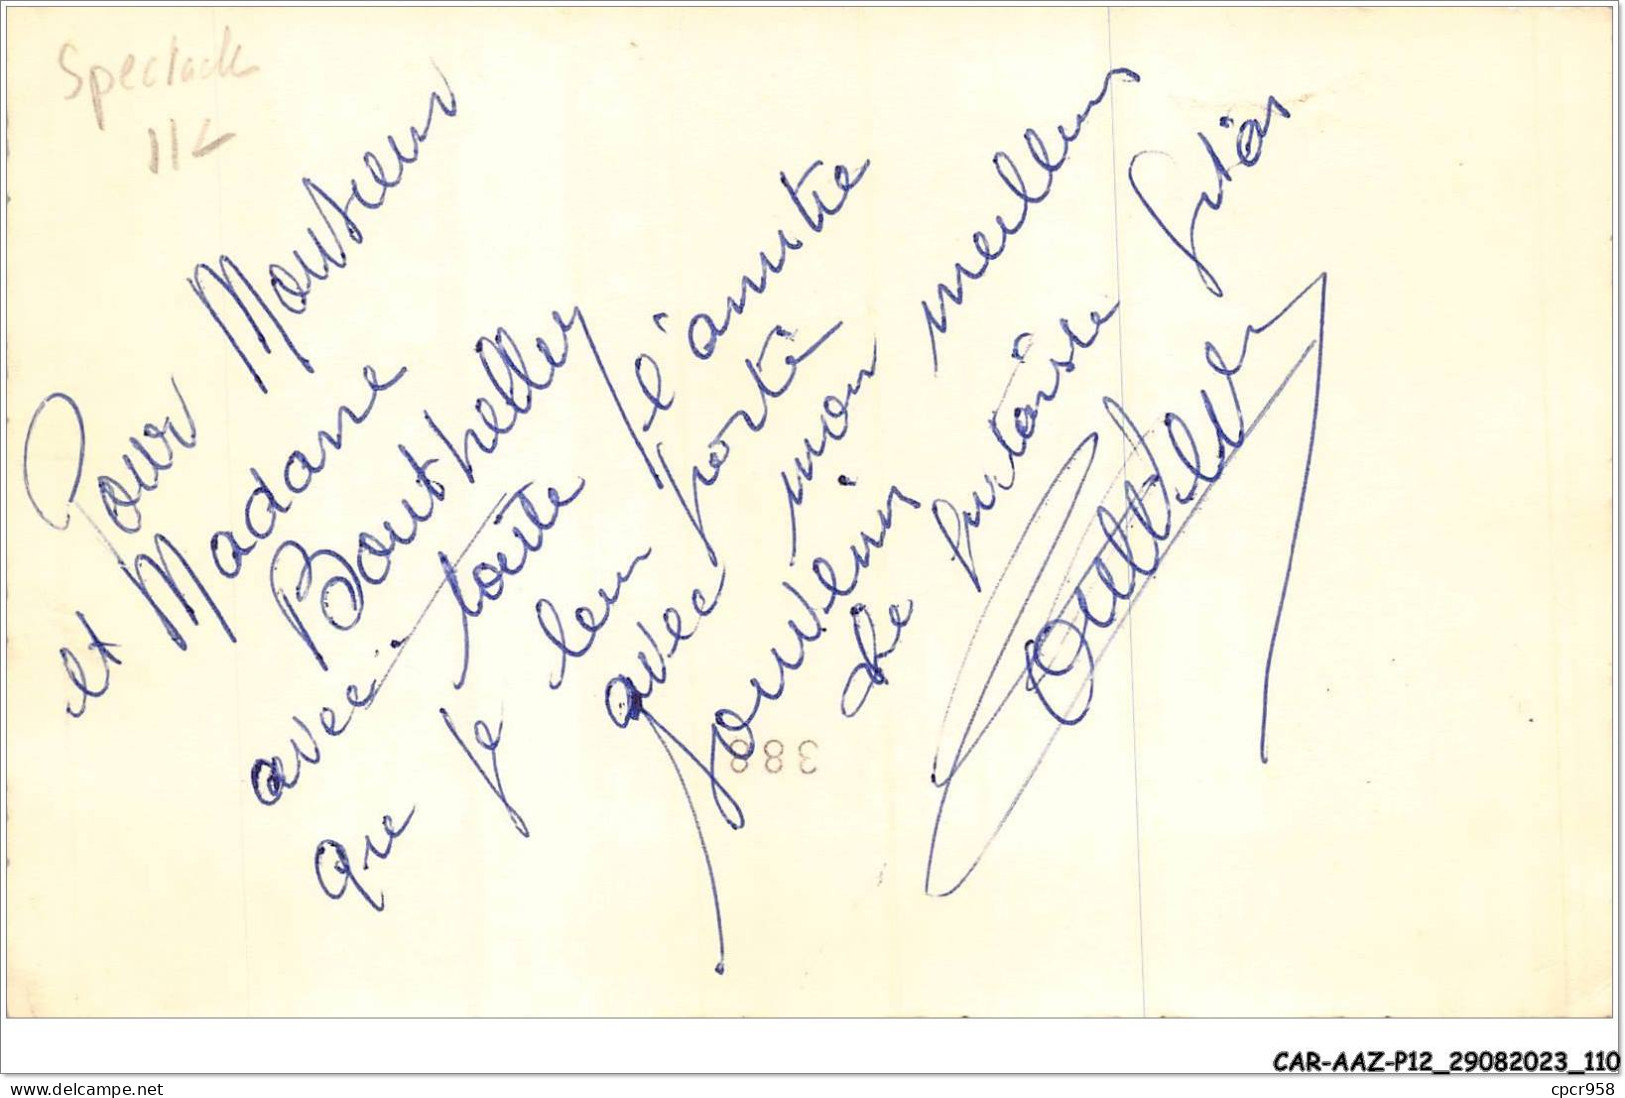 Spectacle
112
Pour Monsieur
et Madame
Bouthelley
avec toute l'amitié
que je leur porte
avec mon meilleur
souvenir
de
388
CAR-AAZ-P12_29082023_110
www.delcampe.net
cpcr958